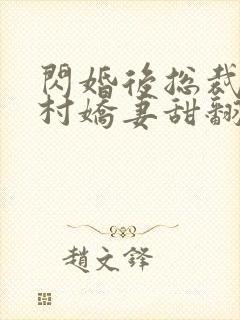 閃婚後總裁
村嬌妻甜翻
趙文鋒